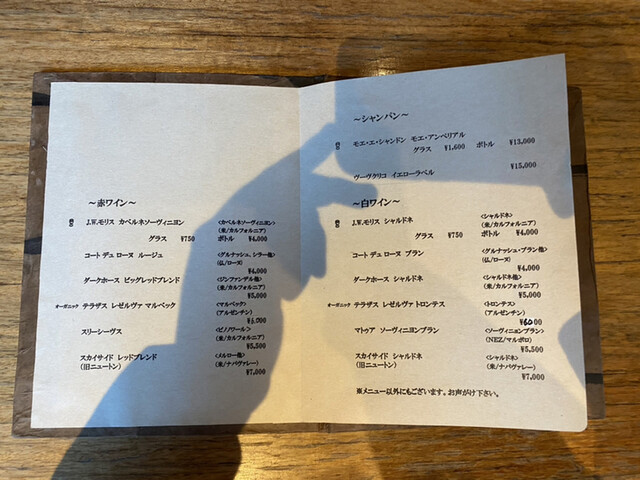 ～赤ワイン～
J.W.モリス カベルネソーヴィニヨン <カベルネソーヴィニヨン>
(米/カルフォルニア)
グラス ¥750 ボトル ¥4,000
コート デュ ローヌ ルージュ <グルナッシュ、シラー他>
(仏/ローヌ)
¥4,000
ダークホース ビッグレッドブレンド <ジンファンデル他>
(米/カルフォルニア)
¥5,000
オーガニック テラザス レゼルヴァ マルベック <マルベック>
(アルゼンチン)
スリーシーヴス <ピノノワール>
(米/カルフォルニア)
¥5,500
スカイサイド レッドブレンド <メルロー他>
(旧ニュートン) (米/ナパヴァレー)
¥7,000
～シャンパン～
モエ・エ・シャンドン モエ・アンペリアル
グラス ¥1,600 ボトル ¥13,000
ヴーヴクリコ イエローラベル ¥15,000
～白ワイン～
J.W.モリス シャルドネ <シャルドネ>
(米/カルフォルニア)
グラス ¥750 ボトル ¥4,000
コート デュ ローヌ ブラン <グルナッシュ・ブラン他>
(仏/ローヌ)
¥4,000
ダークホース シャルドネ <シャルドネ他>
(米/カルフォルニア)
¥5,000
オーガニック テラザス レゼルヴァ トロンテス <トロンテス>
(アルゼンチン)
¥6000
マトゥア ソーヴィニヨンブラン <ソーヴィニョンブラン>
(NEZ/マルボロ)
¥5,500
スカイサイド シャルドネ <シャルドネ>
(旧ニュートン) (米/ナパヴァレー)
¥7,000
※メニュー以外にもございます。お声がけ下さい。